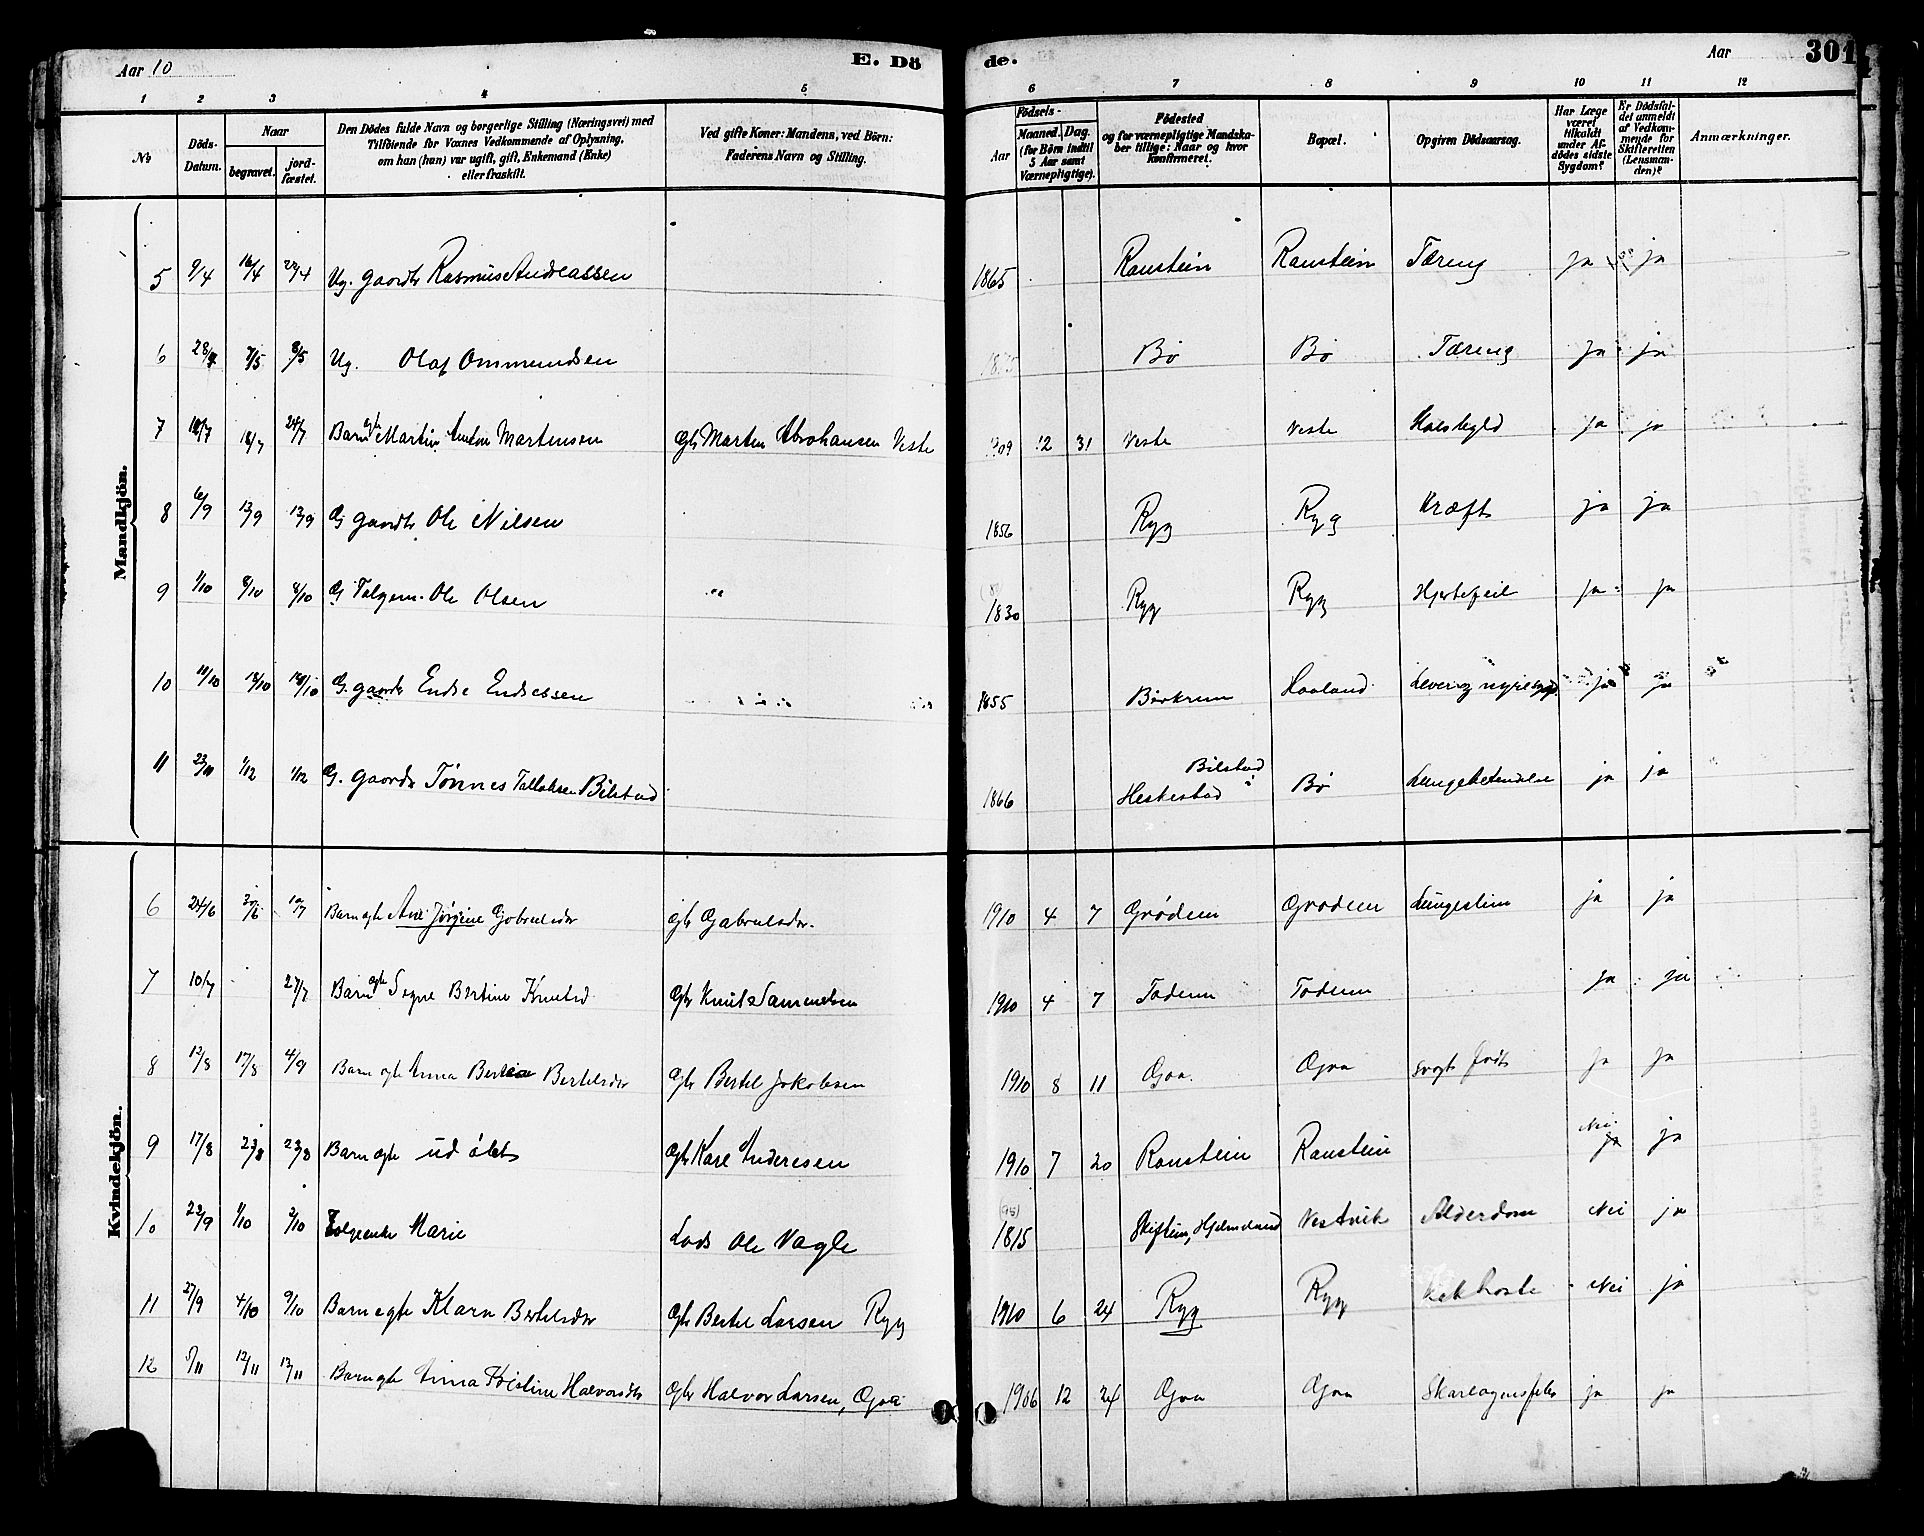 Aar 10 E. Dö de. Aar 301
1 2 3 4 5 6 7 8 9 10 11 12
No
Döds-Datum.
Naar
begravet.
jordfæstet.
Den Dödes fulde Navn og borgerlige Stilling (Næringsvei) med
Tilföiende for Voxnes Vedkommende af Oplysning,
om han (hun) var ugift, gift, Enkemand (Enke)
eller fraskilt.
Ved gifte Koner: Mandens, ved Börn:
Faderens Navn og Stilling.
Födsels-
Aar
Maaned. Dag.
(for Börn indtil
5 Aar samt
Værnepligtige).
Födested
og for værnepligtige Mandska-
ber tillige: Naar og hvor
konfirmeret.
Bopæl.
Opgiven Dödsaarsag.
Har Læge
været
tilkaldt
under Af-
dödes sidste
Sygdom?
Er Dödsfal-
det anmeldt
af Vedkom-
mende for
Skifteretten
(Lensman-
den)?
Anmærkninger.
Mandkjön.
5 9/4 16/4 24/4 Ug. gaardb Rasmus Andreassen 1865 Raustein Raustein Tæring ja ja
6 28/4 7/5 8/5 Ug. Olaf Ommundsen Bø Bø Tæring ja ja
7 18/7 24/7 Barn ægte Martin Anton Martensen Gbr Marten Abrahansen Veste 1909 12 31 Veste Veste ja ja
8 6/9 13/9 13/9 G gaardb Ole Nilsen 1856 Ryg Ryg Kræft ja ja
9 1/10 8/10 8/10 G Ole Olsen 1830 Ryg Ryg Hjertefeil ja ja
10 11/10 18/10 18/10 G. gaardb Endre Endressen 1855 Birkrem Haaland Lever og nyresygd ja ja
11 23/11 1/12 1/12 G. gaardb Tönnes Tallaksen Bilstad 1866 Bilstad i Heskestad Bø Lungebetendelse ja ja
Kvindekjön.
6 24/6 30/6 10/7 Barn ægte Ane Jørgine Gabrielsdr gbr Gabrielsdr. 1910 4 7 Grødem Grødem ja ja
7 10/7 27/7 Barn ægte Signe Bertine Knutsd Gbr Knut Samuelsen 1910 4 7 Todnem Todnem ja ja
8 12/8 17/8 4/9 Barn ægte Anna Bertelsdr gbr Bertel Jakobsen 1910 8 11 Goa Goa svagt født ja ja
9 17/8 23/8 23/8 Barn ægte udøbt gbr Karl Andresen 1910 7 20 Raustein Raustein Nei ja ja
10 23/9 1/10 2/10 Marie Lods Ole Vagle (95) 1815 Skiftun, Hjelmeland Vestvik Alderdom Nei ja
11 27/9 4/10 9/10 Barn ægte Klara Bertelsdr gbr Bertel Larsen Ryg 1910 6 24 Ryg Ryg Kikhoste Nei ja
12 5/11 12/11 13/11 Barn ægte Anna Kristine Halvorsdtr gbr Halvor Larsen, Goa 1906 12 24 Goa Goa Skarlagensfeber ja ja